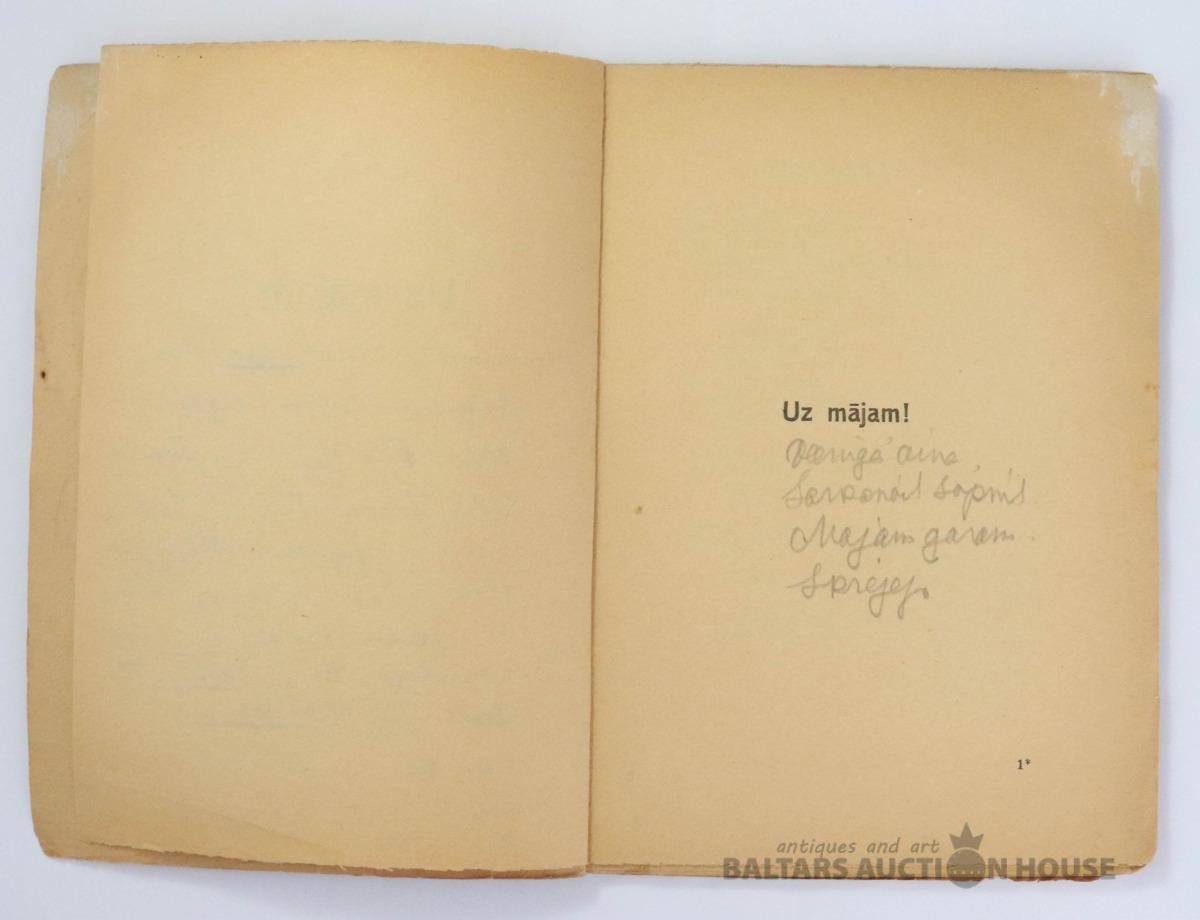 Uz mājam!
aina
Sarkanais sapnis
Majām garam
Skrejej.
1*
antiques and art
BALTARS AUCTION HOUSE